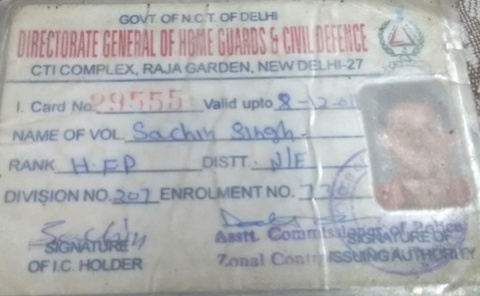 GOVT. OF N.C.T. OF DELHI
DIRECTORATE GENERAL OF HOME GUARDS & CIVIL DEFENCE
CTI COMPLEX, RAJA GARDEN, NEW DELHI-27
I. Card No 29555 Valid upto 8-12-01
NAME OF VOL. Sachin Singh
RANK H.FP DISTT. N/E
DIVISION NO. 207 ENROLMENT NO.
Sachin
SIGNATURE OF I.C. HOLDER
Asstt. Commissioner of Police
SIGNATURE OF ISSUING AUTHORITY
Zonal